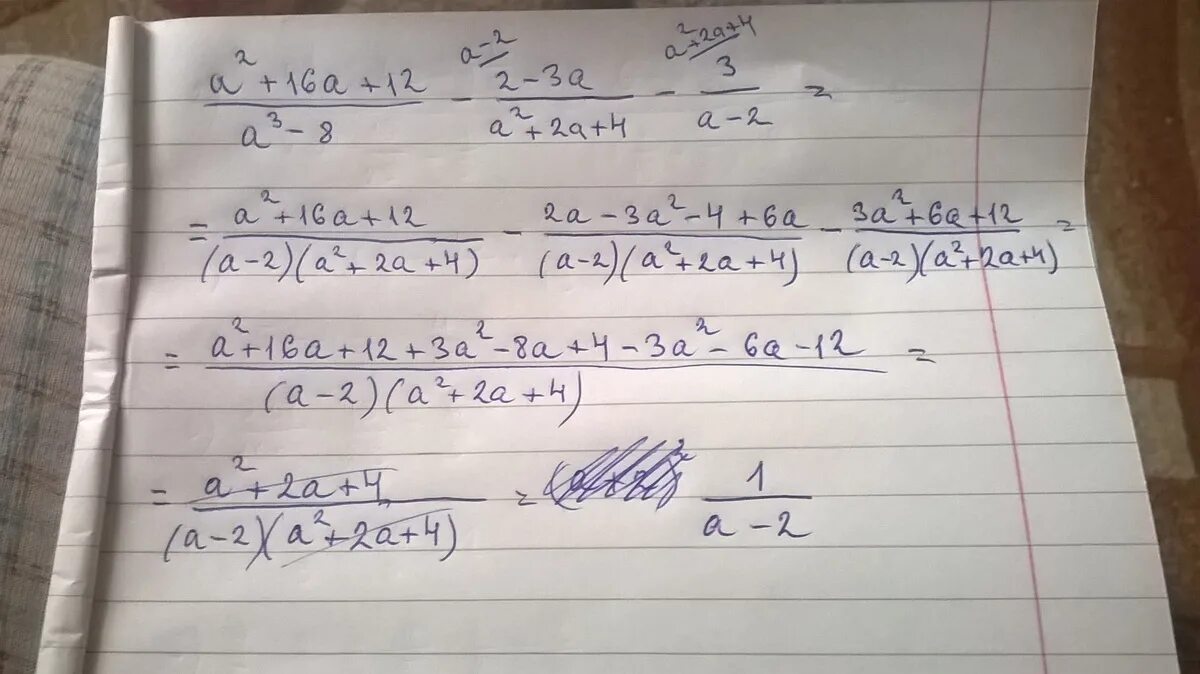 a-2 a²+2a+4
a²+16a+12 / a³-8 - 2-3a / a²+2a+4 - 3 / a-2 =
= a²+16a+12 / (a-2)(a²+2a+4) - 2a-3a²-4+6a / (a-2)(a²+2a+4) - 3a²+6a+12 / (a-2)(a²+2a+4) =
= a²+16a+12+3a²-8a+4-3a²-6a-12 / (a-2)(a²+2a+4) =
= a²+2a+4 / (a-2)(a²+2a+4) = 1 / a-2